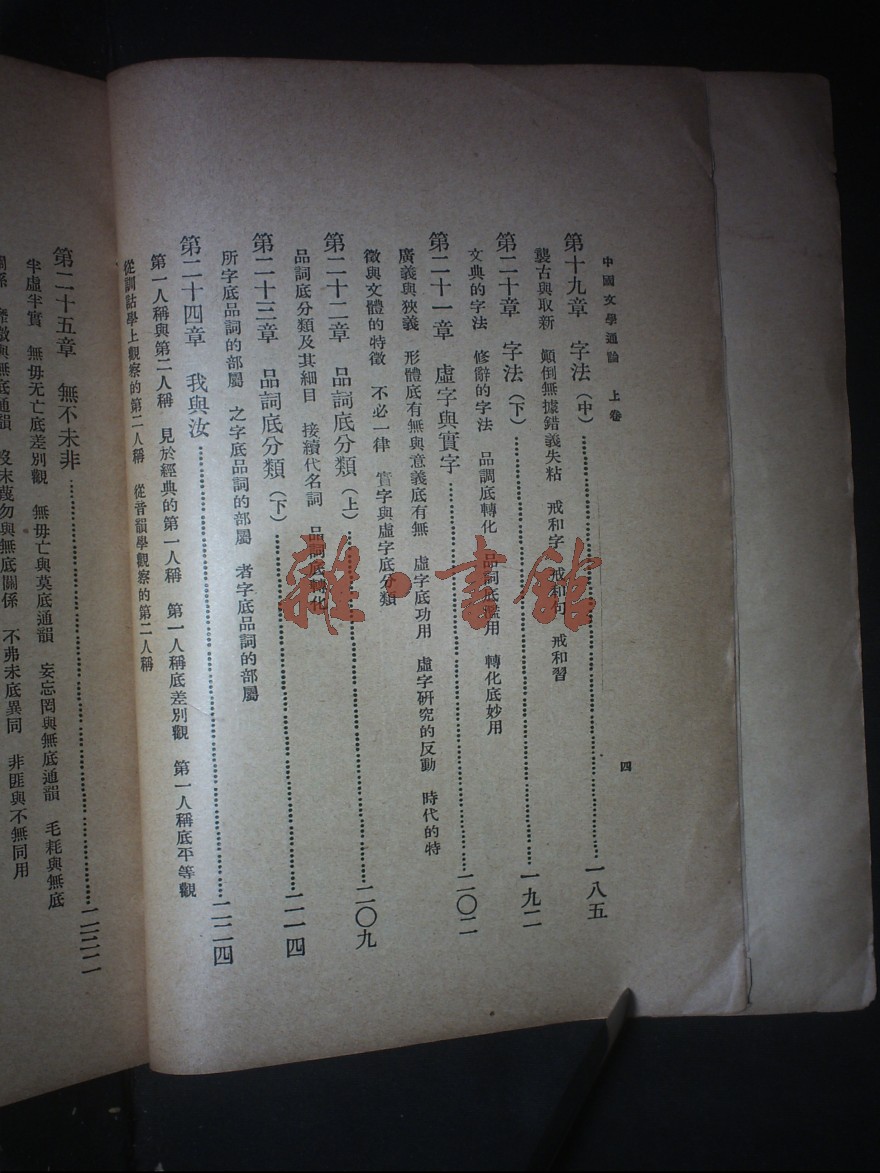 中國文學通論　上卷
四
第十九章　字法（中）………一八五
襲古與取新　顚倒無據錯義失粘　戒和字　戒和句　戒和習
第二十章　字法（下）………一九二
文典的字法　修辭的字法　品調底轉化　品詞底濫用　轉化底妙用
第二十一章　虛字與實字………二〇二
廣義與狹義　形體底有無與意義底有無　虛字底功用　虛字硏究的反動　時代的特
徵與文體的特徵　不必一律　實字與虛字底分類
第二十二章　品詞底分類（上）………二〇九
品詞底分類及其細目　接續代名詞　品詞底轉化
第二十三章　品詞底分類（下）………二一四
所字底品詞的部屬　之字底品詞的部屬　者字底品詞的部屬
第二十四章　我與汝………二二四
第一人稱與第二人稱　見於經典的第一人稱　第一人稱底差別觀　第一人稱底平等觀
從訓詁學上觀察的第二人稱　從音韻學觀察的第二人稱
第二十五章　無不未非………二三二
半虛半實　無毋无亡底差別觀　無毋亡與莫底通韻　妄忘罔與無底通韻　毛耗與無底
關係　靡微與無底通韻　沒末蔑勿與無底關係　不弗未底異同　非匪與不無同用
雜·書館